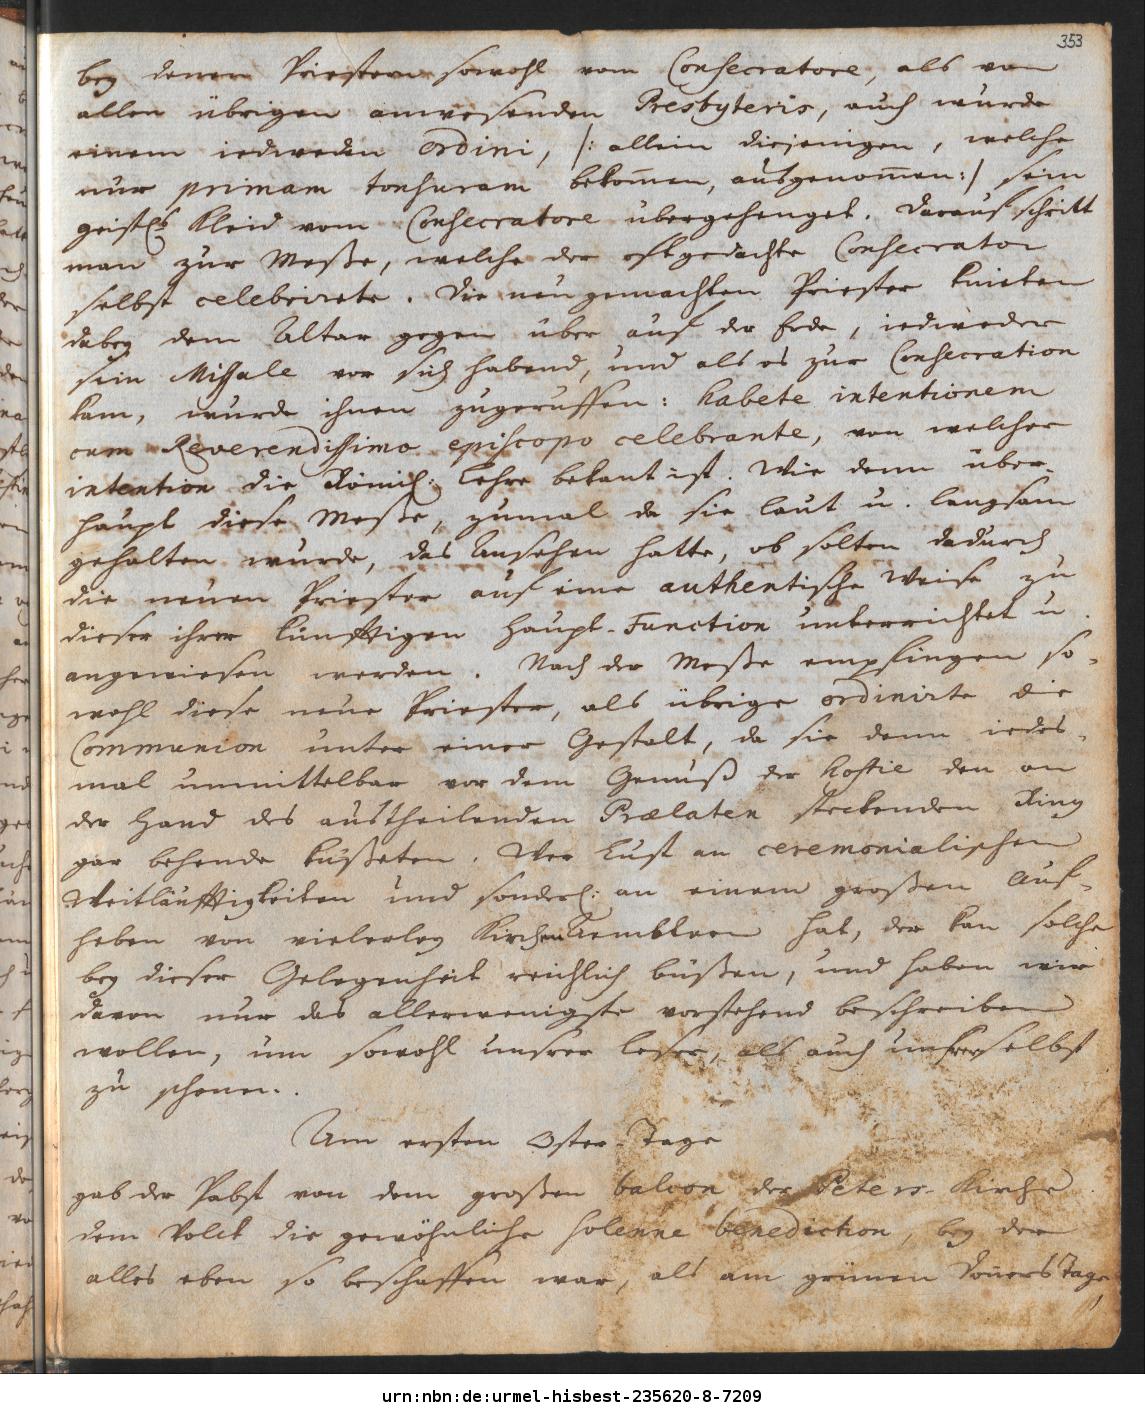 353
bey denen Priestern sowohl vom Consecratore, als von
allen übrigen anwesenden Presbyteris, auch wurde
einem iedweden Ordini, /: allein diejenigen, welche
nur primam tonsuram bekom̄en, ausgenom̄en :/ sein
geistl. Kleid vom Consecratore übergehenget. Darauf schritt
man zur Meße, welche der offtgedachte Consecrator
selbst celebrirte. Die neu gemachten Priester knieten
dabey dem Altar gegen über auf der Erde, iedweder
sein Missale vor sich habend, und als es zur Consecration
kam, wurde ihnen zugeruffen: habete intentionem
cum Reverendissimo episcopo celebrante, von welcher
intention die Römisch: Lehre bekant ist. Wie denn über-
haupt diese Meße, zumal da sie laut u. langsam
gehalten wurde, das Ansehen hatte, ob solten dadurch
die neuen Priester auf eine authentische Weise zu
dieser ihrer künfftigen Haupt-Function unterrichtet u.
angewiesen werden. Nach der Meße empfingen so-
wohl diese neue Priester, als übrige ordinirte die
Communion unter einer Gestalt, da sie denn iedes-
mal unmittelbar vor dem Genuß der Hostie den an
der Hand des austheilenden Prælaten steckenden Ring
gar behende küßeten. Wer Lust an ceremonialischen
Weitläufftigkeiten und sonderl: an einem großen Auf-
heben von vielerley Kirchen hat, der kan solche
bey dieser Gelegenheit reichlich büßen, und haben wir
davon nur das allerwenigste vorstehend beschreiben
wollen, um sowohl unsrer Leser, als auch unsrer selbst
zu schonen.
Am ersten Oster-Tage
gab der Pabst von dem großen balcon der Peters-Kirche
dem Volck die gewöhnliche solenne benediction, bey der
alles eben so beschaffen war, als am grünen Don̄ers Tage
urn:nbn:de:urmel-hisbest-235620-8-7209